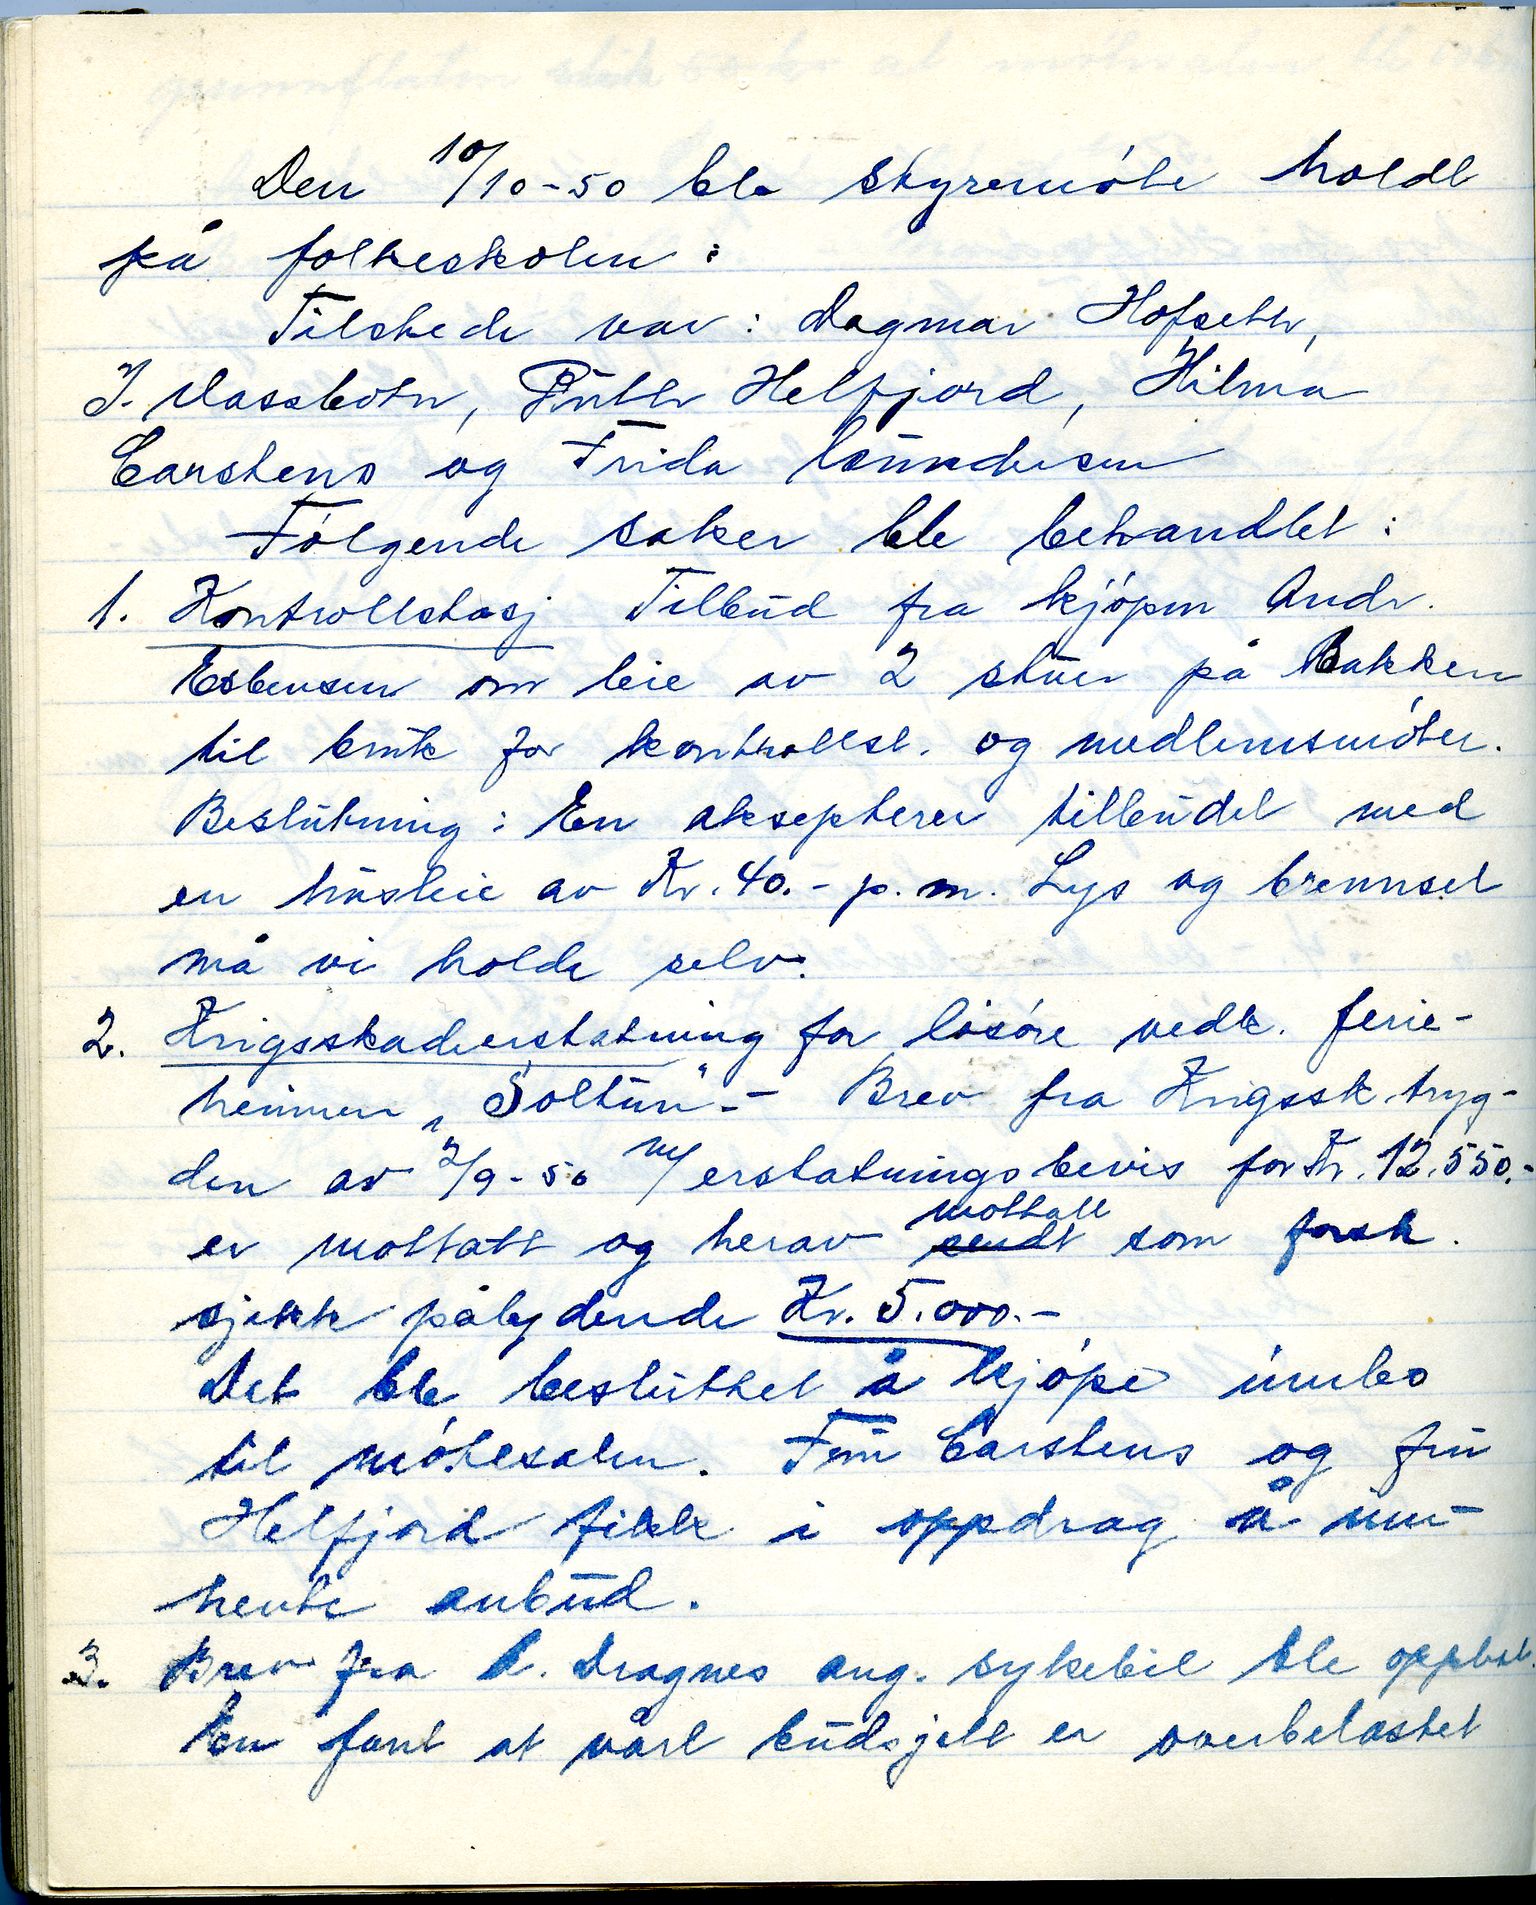 Den 10/10-50 ble styremöte holdt
på folkeskolen :
Tilstede var : Dagmar Hofseth,
J. Vassbotn, Ruth Helfjord, Hilma
Carstens og Frida
Følgende saker ble behandlet :
1. Kontrollstasj Tilbud fra kjöpm Andr.
Esbensen om leie av 2 stuer på Bakken
til bruk for kontrollst. og medlemsmöter.
Beslutning : En aksepterer tilbudet med
en husleie av Kr. 40.- p. m. Lys og brennsel
må vi holde selv.
2. Krigsskadeerstatning for lösöre vedk. ferie-
heimen „Soltun".- Brev fra Krigssk.tryg-
den av 2/9-50 m/ erstatningsbevis for Kr. 12.550.-
er mottatt og herav sendt mottatt som forsk.
sjekk pålydende Kr. 5.000.-
Det ble besluttet å kjöpe innbo
til mötesalen. Fru Carstens og fru
Helfjord fikk i oppdrag å inn-
hente anbud.
3. Brev fra L. Dragnes ang. sykebil ble opplest.
En fant at vårt budsjett er overbelastet